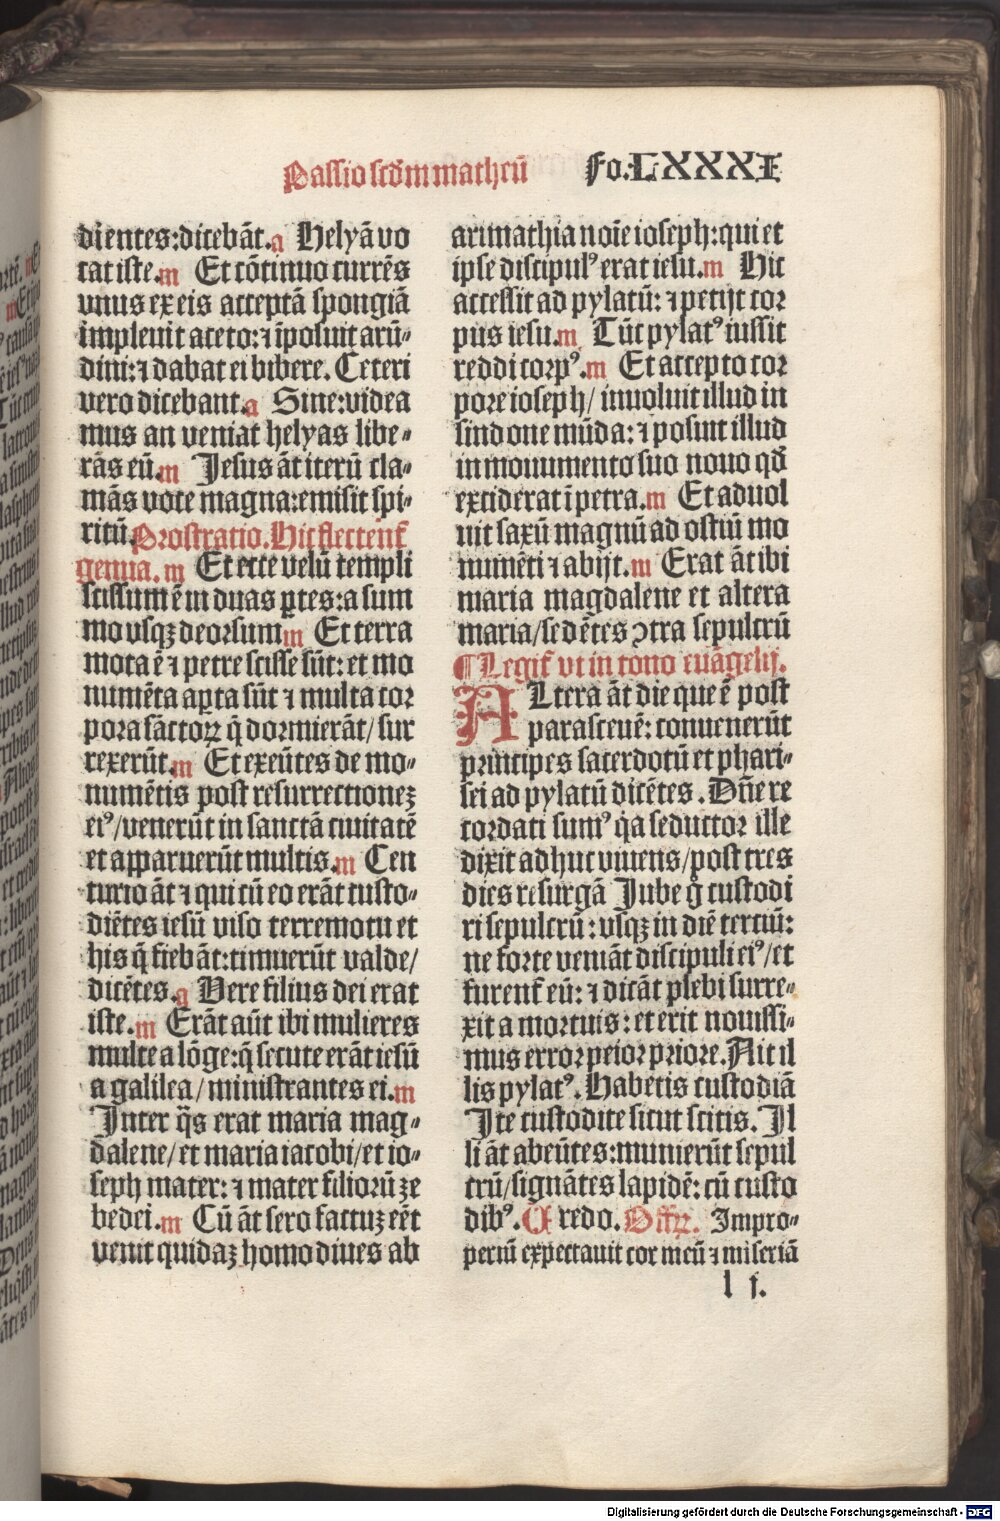 Passio scd̄m matheū
Fo. LXXXI
dientes: dicebāt. a Helyā vo
cat iste. m Et cōtinuo currēs
vnus ex eis acceptā spongiā
impleuit aceto: ⁊ īposuit arū⸗
dini: ⁊ dabat ei bibere. Ceteri
vero dicebant. a Sine: videa
mus an veniat helyas libe⸗
rās eū. m Jesus āt iterū cla⸗
mās voce magna: emisit spi⸗
ritū. Prostratio. Hic flectent̄
genua. m Et ecce velū templi
scissum ē in duas ꝑtes: a sum
mo vsqꝫ deorsum m Et terra
mota ē ⁊ petre scisse sūt: et mo
numēta aꝑta sūt ⁊ multa cor
pora sāctoꝝ q̄ dormierāt/ sur
rexerūt. m Et exeūtes de mo⸗
numētis post resurrectioneꝫ
eiꝰ/ venerūt in sanctā ciuitatē
et apparuerūt multis. m Cen
turio āt ⁊ qui cū eo erāt custo⸗
diētes iesū viso terremotu et
his q̄ fiebāt: timuerūt valde/
dicētes. a Vere filius dei erat
iste. m Erāt aūt ibi mulieres
multe a lōge: q̄ secute erāt iesū
a galilea/ ministrantes ei. m
Inter q̄s erat maria mag⸗
dalene/ et maria iacobi/ et io⸗
seph mater: ⁊ mater filiorū ze
bedei. m Cū āt sero factuꝫ eēt
venit quidaꝫ homo diues ab
arimathia noīe ioseph: qui et
ipse discipulꝰ erat iesu. m Hic
accessit ad pylatū: ⁊ petijt cor
pus iesu. m Tūc pylatꝰ iussit
reddi corpꝰ. m Et accepto cor
pore ioseph/ inuoluit illud in
sindone mūda: ⁊ posuit illud
in monumento suo nouo qd̄
exciderat ī petra. m Et aduol
uit saxū magnū ad ostiū mo
numēti ⁊ abijt. m Erat āt ibi
maria magdalene et altera
maria/ sedētes ↄtra sepulcrū
¶ Legit̄ vt in tono euāgelij.
ALtera āt die que ē post
parasceuē: conuenerūt
principes sacerdotū et phari⸗
sei ad pylatū dicētes. Dn̄e re
cordati sumꝰ q̇a seductor ille
dixit adhuc viuens/ post tres
dies resurgā Jube g̊ custodi
ri sepulcrū: vsqꝫ in diē terciū:
ne forte veniāt discipuli eiꝰ/ et
furent̄ eū: ⁊ dicāt plebi surre⸗
xit a mortuis: et erit nouissi⸗
mus error peior priore. Ait il
lis pylatꝰ. Habetis custodiā
Ite custodite sicut scitis. Il
li āt abeūtes: munierūt sepul
crū/ signātes lapidē: cū custo
dibꝰ. Credo. Offꝝ. Impro⸗
periū expectauit cor meū ⁊ miseriā
l j.
Digitalisierung gefördert durch die Deutsche Forschungsgemeinschaft - DFG